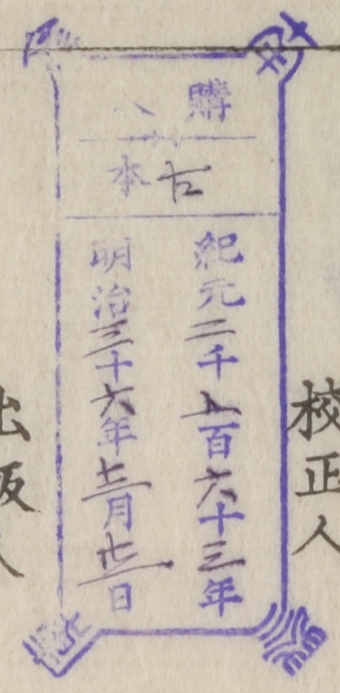 校正人
購入
古本
紀元二千五百六十三年
明治三十六年十二月廿一日
出版人